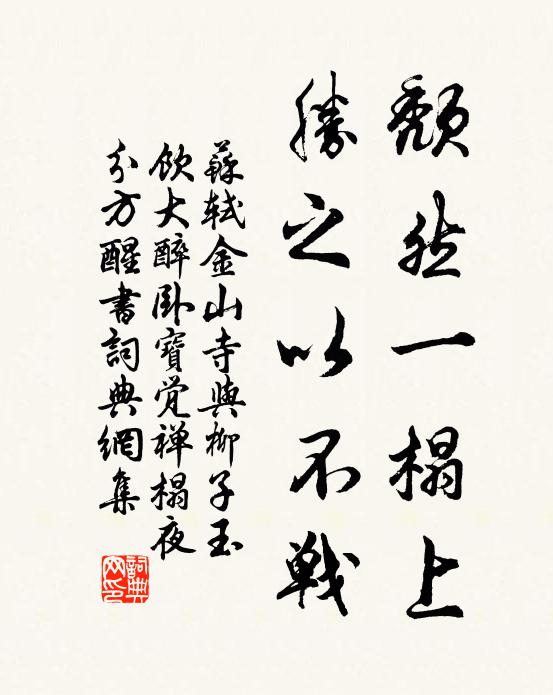 頹然一榻上
勝之以不戰
蘇軾金山寺與柳子玉
飲大醉臥寶覺禪榻夜
分方醒書詞典網集
詞典網印